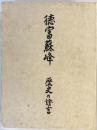 德富蘇峰
歴史の證言